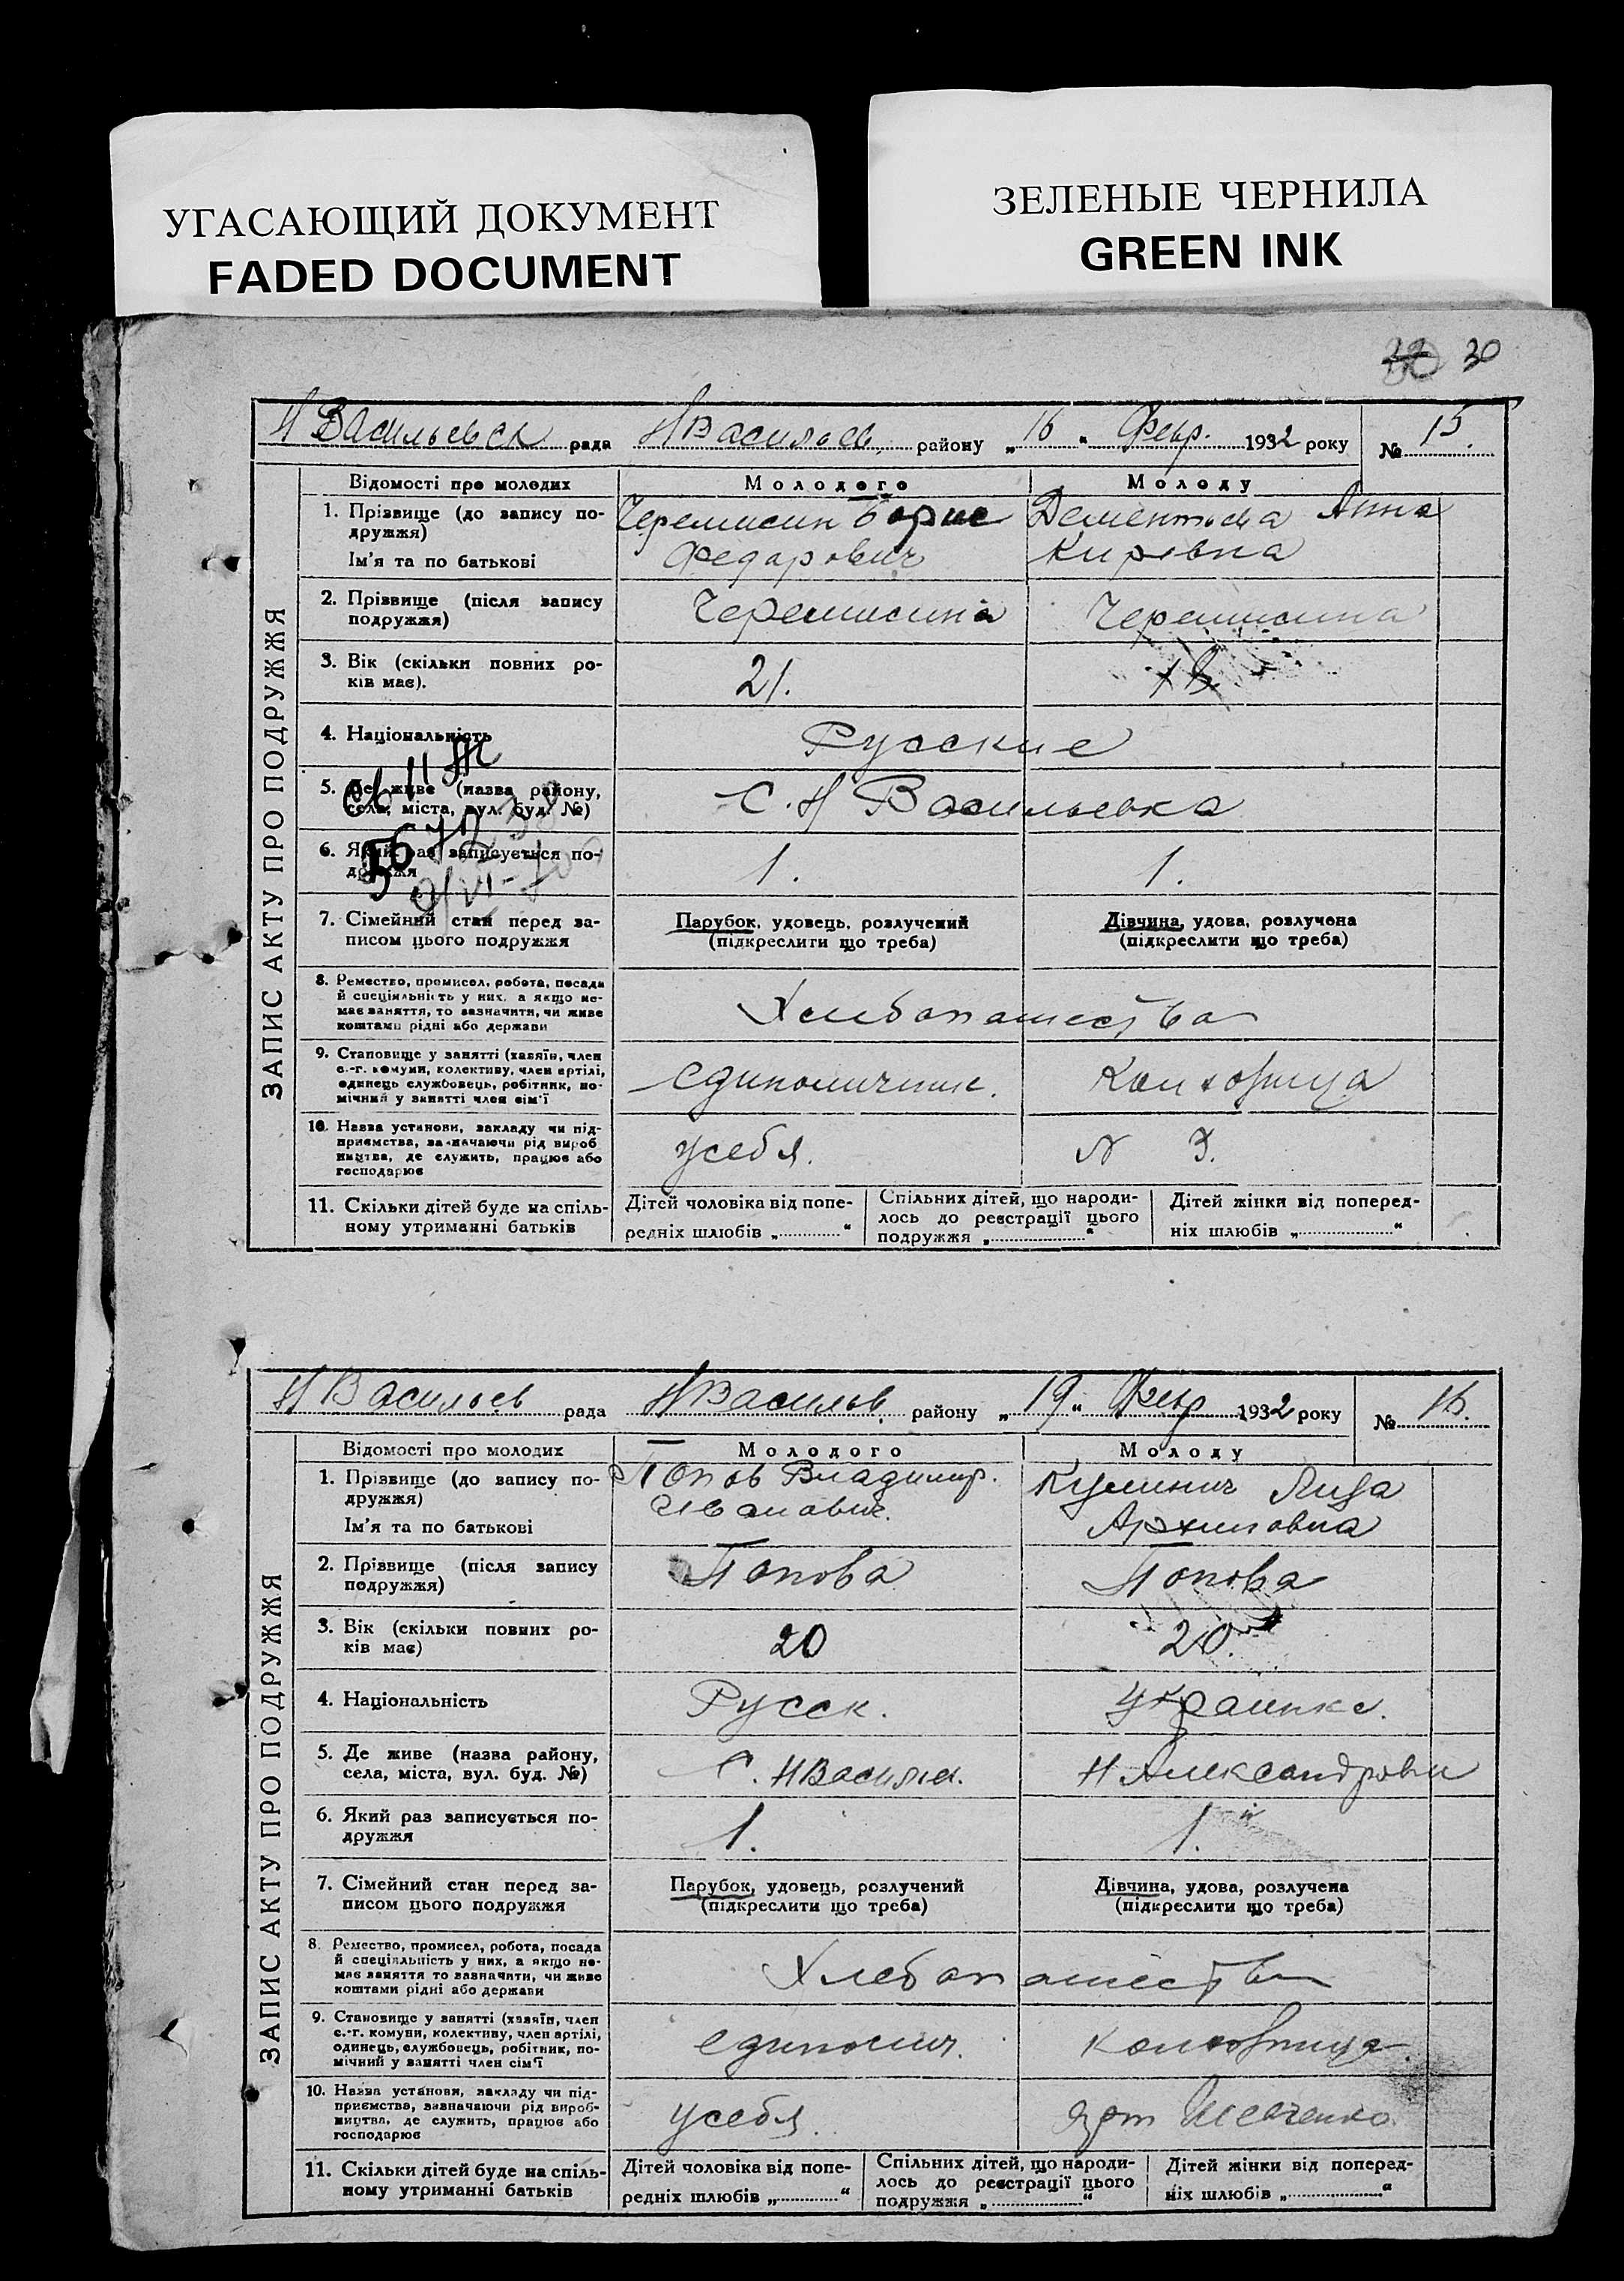 УГАСАЮЩИЙ ДОКУМЕНТ
FADED DOCUMENT
ЗЕЛЕНЫЕ ЧЕРНИЛА
GREEN INK
30
Н Васильевск рада Н Васильев району „16" Февр. 1932 року № 15.
ЗАПИС АКТУ ПРО ПОДРУЖЖЯ
Відомості про молодих Молодого Молоду
1. Прізвище (до запису по-
дружжя)
Ім'я та по батькові
Черемисин Борис
Федарович
Дементьева Анна
Киревна
2. Прізвище (після запису
подружжя)
Черемисина Черемисина
3. Вік (скільки повних ро-
ків має).
21. 18.
4. Національність
Русские
5. Де живе (назва району,
села, міста, вул. буд. №)
С. Н Васильевка
6. Який раз записується по-
дружжя
1. 1.
7. Сімейний стан перед за-
писом цього подружжя
Парубок, удовець, розлучений
(підкреслити що треба)
Дівчина, удова, розлучена
(підкреслити що треба)
8. Ремество, промисел, робота, посада
й спеціяльність у них, а якщо не-
має заняття, то зазначити, чи живе
коштами рідні або держави
Хлебопашество
9. Становище у занятті (хазяїн, член
с.-г. комуни, колективу, член артілі,
одинець службовець, робітник, по-
мічний у занятті член сім'ї
единоличник. Колхозница
10. Назва установи, закладу чи під-
приємства, зазначаючи рід вироб
ництва, де служить, працює або
господарює
усебя. N 3.
11. Скільки дітей буде на спіль-
ному утриманні батьків
Дітей чоловіка від попе-
редніх шлюбів „ "
Спільних дітей, що народи-
лось до реєстрації цього
подружжя „ "
Дітей жінки від поперед-
ніх шлюбів „ "
Н Васильев рада Н Васильев району „19" Февр 1932 року № 16.
ЗАПИС АКТУ ПРО ПОДРУЖЖЯ
Відомості про молодих Молодого Молоду
1. Прізвище (до запису по-
дружжя)
Ім'я та по батькові
Попов Владимир.
Иванович.
Куминич Лиза
Архиповна
2. Прізвище (після запису
подружжя)
Попова Попова
3. Вік (скільки повних ро-
ків має)
20 20.
4. Національність
Русск. Украинка.
5. Де живе (назва району,
села, міста, вул. буд. №)
С. Н Васильев. Н Александровки
6. Який раз записується по-
дружжя
1. 1.й
7. Сімейний стан перед за-
писом цього подружжя
Парубок, удовець, розлучений
(підкреслити що треба)
Дівчина, удова, розлучена
(підкреслити що треба)
8. Ремество, промисел, робота, посада
й спеціяльність у них, а якщо не-
має заняття то зазначити, чи живе
коштами рідні або держави
Хлебопашество
9. Становище у занятті (хазяїн, член
с.-г. комуни, колективу, член артілі,
одинець, службовець, робітник, по-
мічний у занятті член сім'ї
единолич. Колхозница
10. Назва установи, закладу чи під-
приємства, зазначаючи рід вироб-
ництва, де служить, працює або
господарює
усебя. арт Шевченко.
11. Скільки дітей буде на спіль-
ному утриманні батьків
Дітей чоловіка від попе-
редніх шлюбів „ "
Спільних дітей, що народи-
лось до реєстрації цього
подружжя „ "
Дітей жінки від поперед-
ніх шлюбів „ "